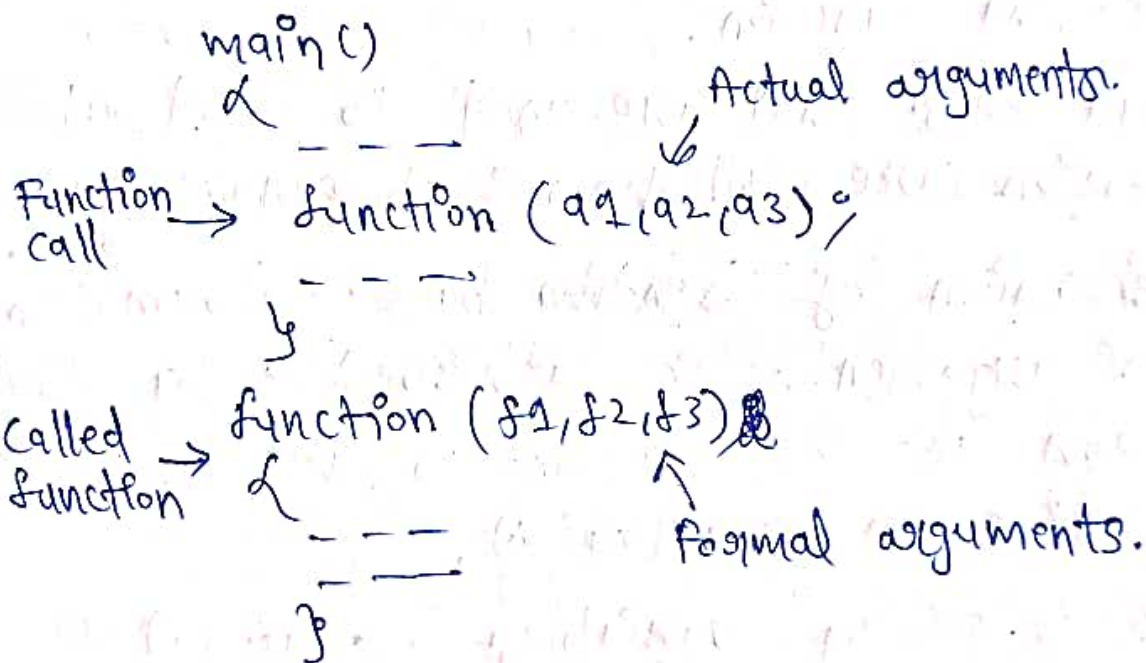 main()
{
Actual arguments.
- - -
Function call → function (a1,a2,a3);
- - -
}
Called function → function (f1,f2,f3)
{
- - -
Formal arguments.
- -
}